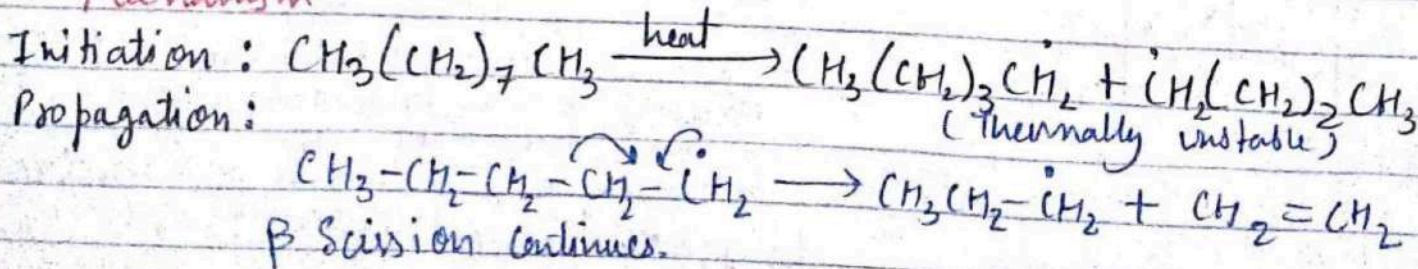 Mechanism
Initiation : CH₃(CH₂)₇CH₃ —heat→ CH₃(CH₂)₃ĊH₂ + ĊH₂(CH₂)₂CH₃
(Thermally unstable)
Propagation :
CH₃-CH₂-CH₂-CH₂-ĊH₂ ⟶ CH₃CH₂-ĊH₂ + CH₂=CH₂
β Scission Continues.